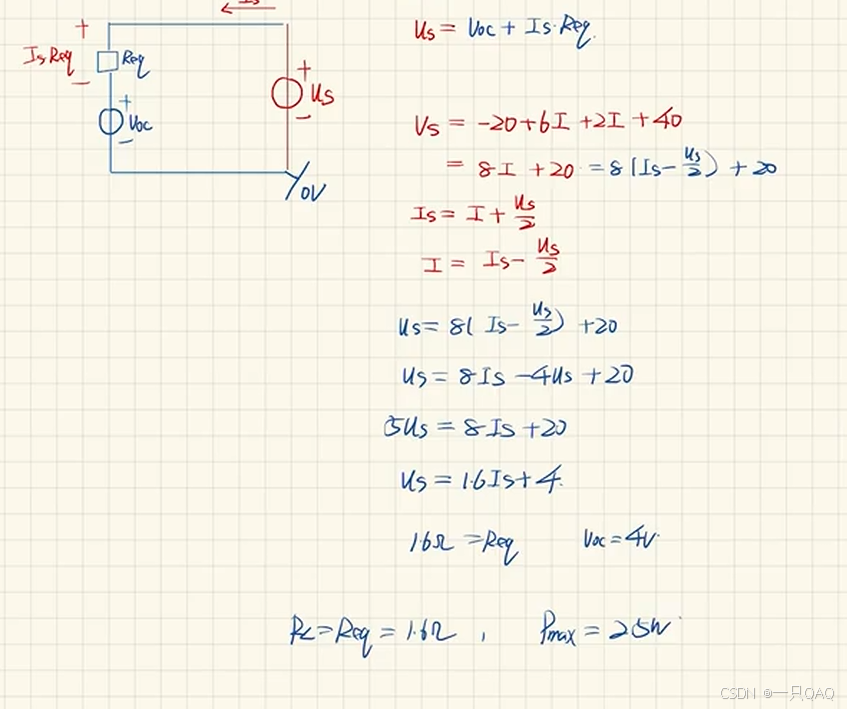 Is
+
Is Req
Req
−
+
Voc
−
+
Us
−
0V
Us = Voc + Is·Req
Vs = -20+6I +2I +40
= 8I +20 = 8(Is- Us/2) + 20
Is = I + Us/2
I = Is- Us/2
Us = 8( Is- Us/2) +20
Us = 8Is -4Us +20
5Us = 8Is +20
Us = 1.6Is+4.
1.6Ω =Req Voc=4V.
RL=Req = 1.6Ω , Pmax = 2.5W
CSDN @一只QAQ